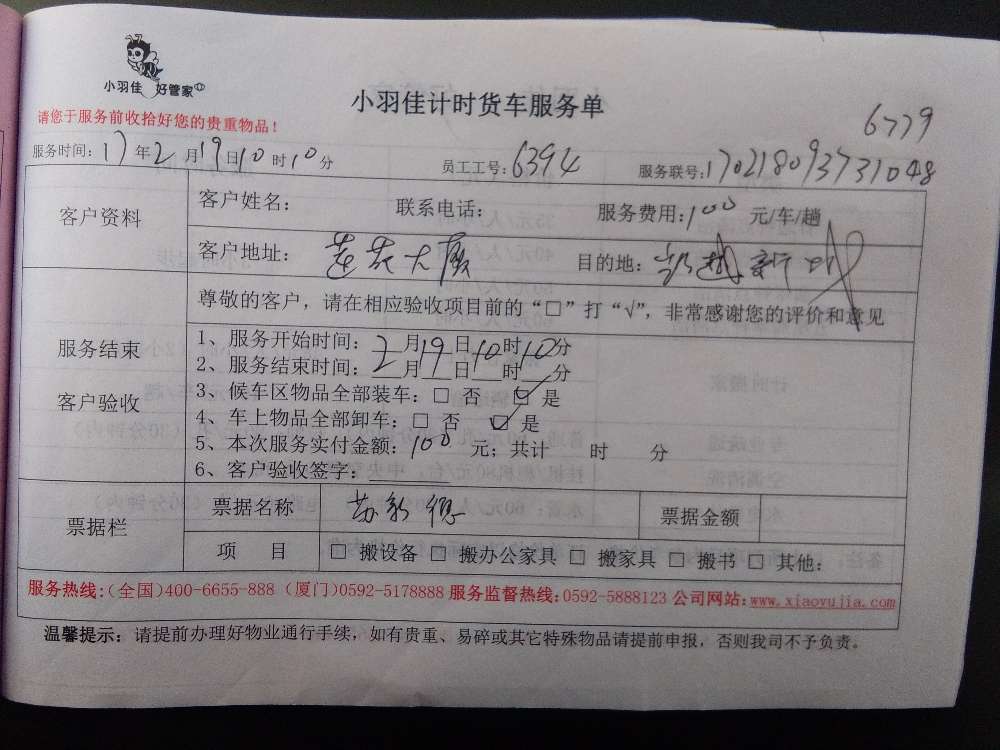 小羽佳 好管家
小羽佳计时货车服务单
6779
请您于服务前收拾好您的贵重物品！
服务时间：17年2月19日10时10分 员工工号：6394 服务联号：170218093731048
客户资料
客户姓名： 联系电话： 服务费用：100 元/车/趟
客户地址：莲花大厦 目的地：
尊敬的客户，请在相应验收项目前的“□”打“√”，非常感谢您的评价和意见
服务结束
客户验收
1、服务开始时间：2月19日10时10分
2、服务结束时间：__月__日__时__分
3、候车区物品全部装车：□ 否 ☑ 是
4、车上物品全部卸车：□ 否 ☑ 是
5、本次服务实付金额：100 元；共计 时 分
6、客户验收签字：
票据栏
票据名称 票据金额
项 目 □ 搬设备 □ 搬办公家具 □ 搬家具 □ 搬书 □ 其他：
服务热线：(全国)400-6655-888 (厦门)0592-5178888 服务监督热线：0592-5888123 公司网站：www.xiaoyujia.com
温馨提示：请提前办理好物业通行手续，如有贵重、易碎或其它特殊物品请提前申报，否则我司不予负责。